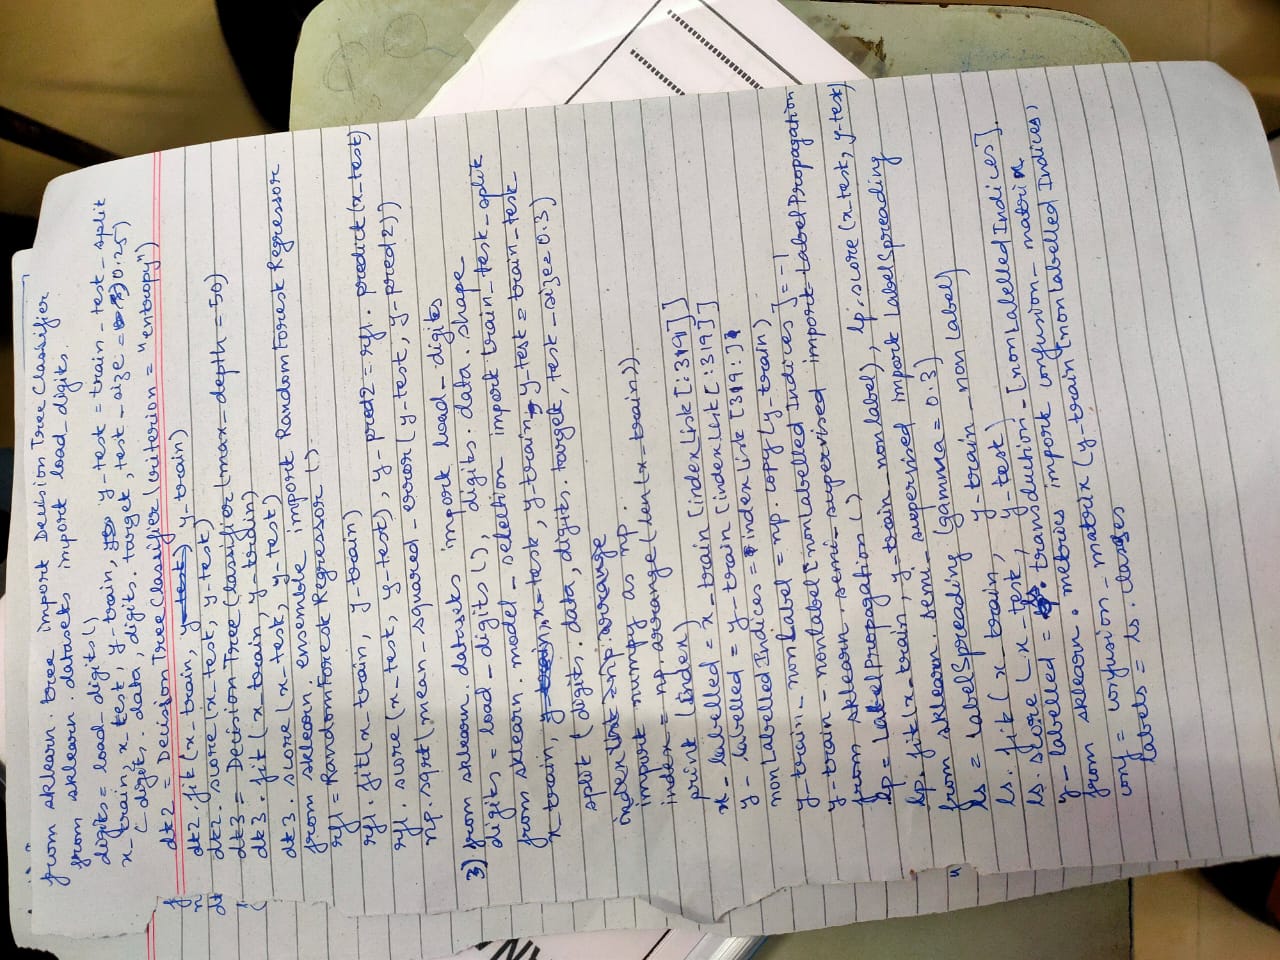 from sklearn. tree import Decision Tree Classifier
from sklearn. datasets import load_digits.
digits = load_digits()
x_train, x_test, y_train, y_test = train_test_split
(digits. data, digits. target, test_size = 0.25)
dt2 = Decision Tree Classifier (criterion = "entropy")
dt2. fit (x_train, y_train)
dt2. score (x_test, y_test)
dt3 = Decision Tree Classifier (max_depth = 50)
dt3. fit (x_train, y_train)
dt3. score (x_test, y_test)
from sklearn. ensemble import Random Forest Regressor
rf1 = Random Forest Regressor ()
rf1. fit(x_train, y_train)
rf1. score (x_test, y_test), y_pred2 = rf1. predict (x_test)
np. sqrt (mean_squared_error (y_test, y_pred2))
3) from sklearn. datasets import load_digits
digits = load_digits (), digits. data. shape
from sklearn. model_selection import train_test_split
x train, x_test, y_train, y_test = train_test_
split (digits. data, digits. target, test_size = 0.3)
index list = np. arrange
import numpy as np.
index = np. arrange (len (x_train))
print (index)
x_labelled = x_train [index List [:319]]
y_labelled = y_train [index List [:319]]
non Labelled Indices = index List [319:]
y_train_nonLabel = np. copy (y_train)
y_train_nonlabel [nonLabelled Indices] = -1
from sklearn. semi_supervised import Label Propagation
lp = Label Propagation ()
lp. fit (x_train, y_train_non label), lp. score (x_test, y_test)
from sklearn. semi_supervised import Label Spreading
ls = Label Spreading (gamma = 0.3)
ls. fit (x_train, y_train_non Label)
ls. score (x_test, y_test)
y_labelled = ls. transduction_[nonLabelled Indices].
from sklearn. metrics import confusion_matrix
conf = confusion_matrix (y_train [non Labelled Indices,
labels = ls. classes